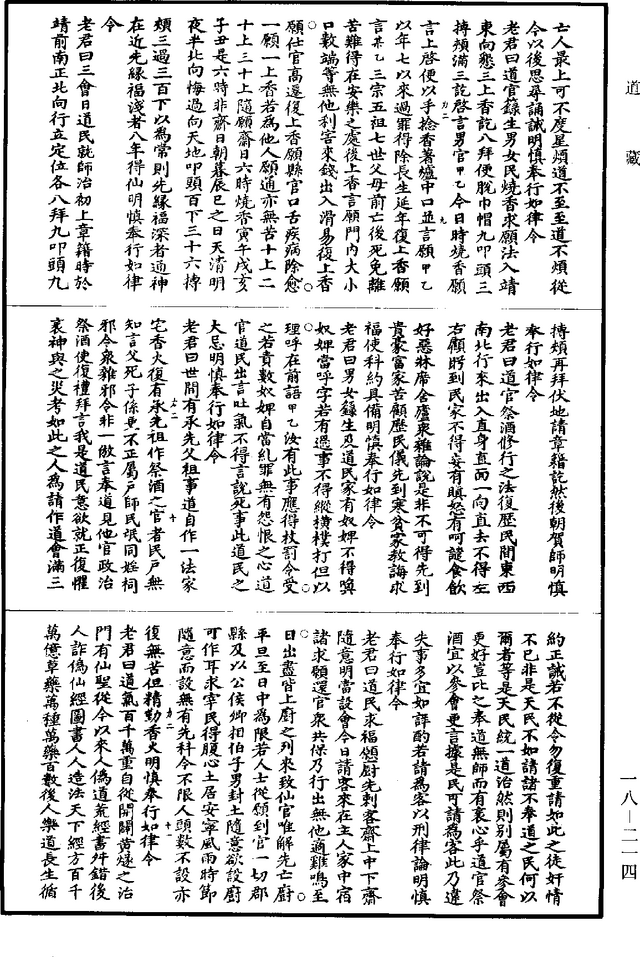 道藏
亡人最上可不度星煩道不至至道不煩從
今以後思尋誦誡明慎奉行如律令
老君曰道官籙生男女民燒香求願法入靖
東向懇三上香訖八拜便脫巾帽九叩頭三
搏頰滿三訖啓言男官甲乙今日時燒香願
言上啓便以手捻香著爐中口並言願甲乙
以年七以來過罪得除長生延年復上香願
言某乙三宗五祖七世父母前亡後死免離
苦難得在安樂之處後上香言願門內大小
口數端等無他利客來錢出入滑易復上香
願仕官高遷復上香願縣官口舌疾病除愈
一願一上香若為他人願通亦無苦十上二
十上三十上隨願齋日六時燒香寅午戌亥
子丑是六時非齋日朝暮辰巳之日天清明
夜半北向悔過向天地叩頭百下三十六搏
頰三過三百下以為常則先緣福深者通神
在近先緣福淺者八年得仙明慎奉行如律
令
老君曰三會日道民就師治初上章籍時於
靖前南正北向行立定位各八拜九叩頭九
搏頰再拜伏地請章籍訖然後朝賀師明慎
奉行如律令
老君曰道官祭酒修行之法復歷民間東西
南北行來出入直身直面一向直去不得左
右顧將到民家不得妄有瞋怒有呵譴食飲
好惡牀席舍廬衷雜論說是非不可得先到
貴豪富家苦顧歷民儀先到寒貧家教誨求
福使科約具備明慎奉行如律令
老君曰男女籙生及道民家有奴婢不得喚
奴婢當呼字若有過事不得縱橫撲打但以
理呼在前語甲乙汝有此事應得杖罰令受
之若責數奴婢自當糺罪無有怨恨之心道
官道民出言吐氣不得言說死事此道民之
大忌明慎奉行如律令
老君曰世間有承先父祖事道自作一法家
宅香火復有承先祖作祭酒之官者民戶無
知言父死子係更不正屬戶師民氓同姓祠
邪令衆雜邪令非一傲言奉道見他官政治
祭酒使復禮拜言我是道民意欲就正復懼
衰神與之災考如此之人為請作道會滿三
約正誡若不從令勿復重請如此之徒奸情
不已非是天民不如請諸不奉道之民何以
爾者等是天民統一道治然則別屬有參會
更好豈比之奉道無師而有衷心乎道官祭
酒宜以參會更言據是民可請為客此乃違
失事多宜如詳酌若請為客以刑律論明慎
奉行如律令
老君曰道民求福願廚先刺客齋上中下齋
隨意明當設會今日請客來在主人家中宿
諸求願還官衆共保乃行出無他適雞鳴至
日出盡皆上廚之列來致仙官唯解先亡廚
平旦至日中為限若人士從願到官一切郡
縣及以公侯卿相伯子男封土隨意欲設廚
可作耳求宰民得腹心土居安寧風雨時節
隨意而設無有先科今不限人頭數不設亦
復無苦但精勤香火明慎奉行如律令
老君曰道氣百千萬重自從開闢黃燧之治
門有仙聖從今以來人偽道荒經書舛錯後
人詐偽仙經圖書人人造法天下經方百千
萬億草藥萬種萬藥百數後人樂道長生循
一八—二一四